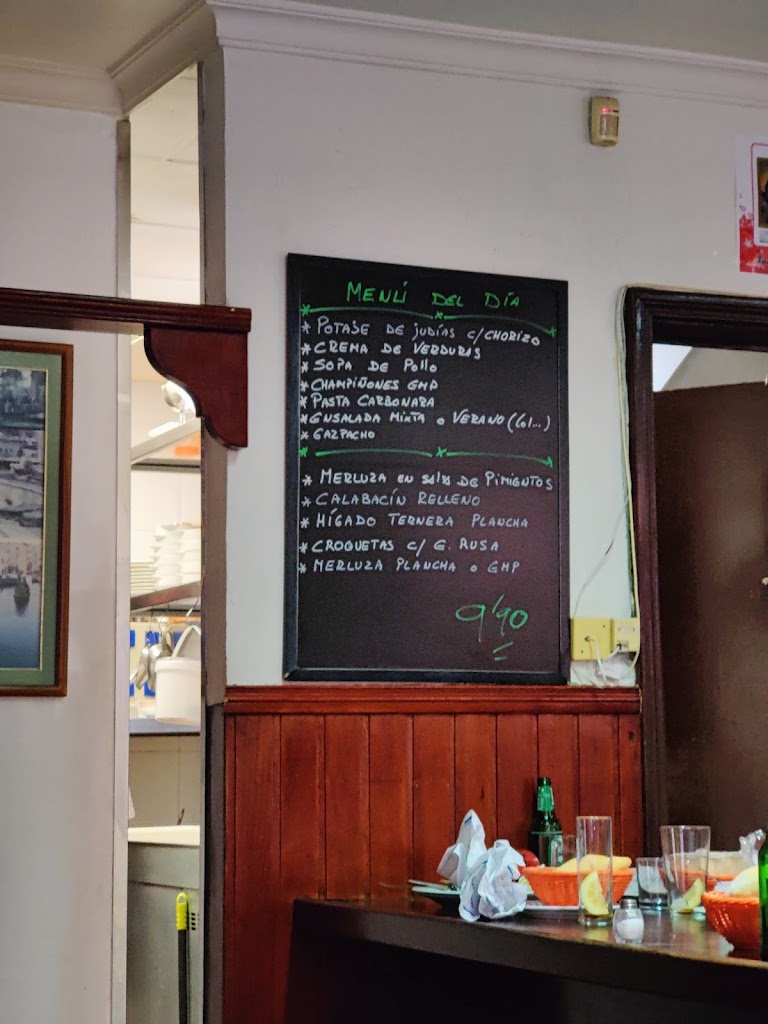 MENÚ DEL DÍA
* POTAJE DE JUDÍAS C/CHORIZO
* CREMA DE VERDURAS
* SOPA DE POLLO
* CHAMPIÑONES GMP
* PASTA CARBONARA
* ENSALADA MIXTA o VERANO (Col...)
* GAZPACHO
* MERLUZA EN SALSA DE PIMIENTOS
* CALABACÍN RELLENO
* HÍGADO TERNERA PLANCHA
* CROQUETAS C/ E. RUSA
* MERLUZA PLANCHA o GMP
9'90